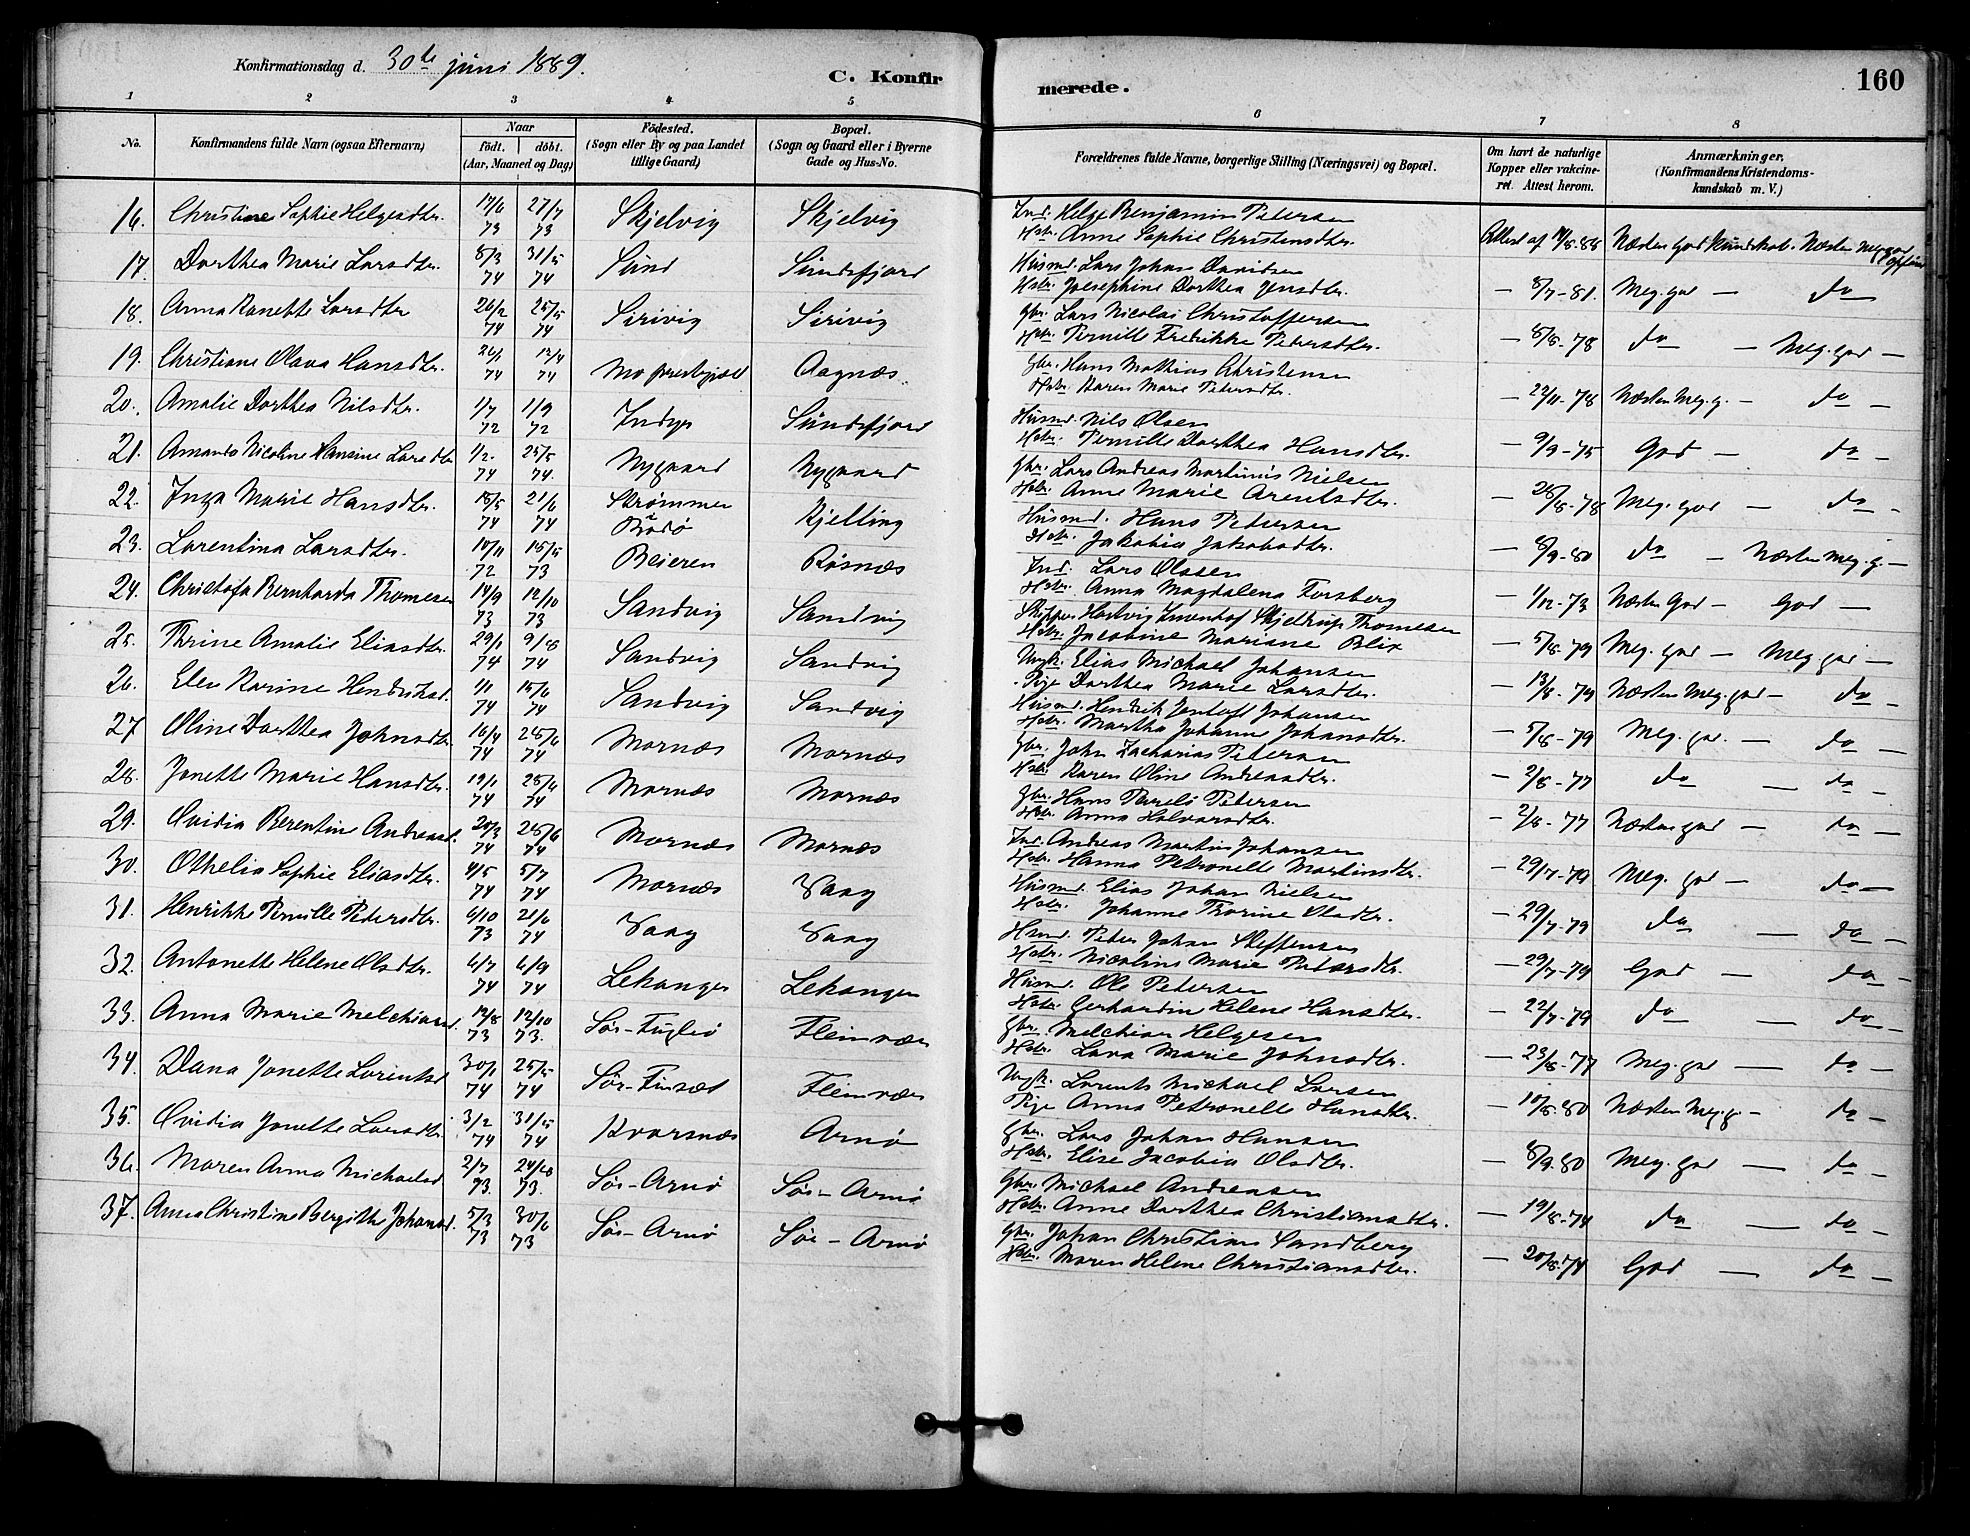 Konfirmationsdag d. 30te juni 1889.
C. Konfirmerede.
160
1 2 3 4 5 6 7 8
No.
Konfirmandens fulde Navn (ogsaa Efternavn)
Naar
födt. döbt.
(Aar, Maaned og Dag)
Födested.
(Sogn eller By og paa Landet
tillige Gaard)
Bopæl.
(Sogn og Gaard eller i Byerne
Gade og Hus-No.
Forældrenes fulde Navne, borgerlige Stilling (Næringsvei) og Bopæl.
Om havt de naturlige
Kopper eller vakcine-
ret. Attest herom.
Anmærkninger.
(Konfirmandens Kristendoms-
kundskab m. V.)
16. Christine Sophie Helgesdtr. 17/6 73 27/7 73 Skjelvig Skjelvig
Ind. Helge Benjamin Petersen
Hstr. Anne Sophie Christensdtr. Attest af Næsten god Kundskab. Næsten meg. god
17. Dorthea Marie Larsdtr. 8/3 74 31/5 74 Sund Sundsfjord
Husmd. Lars Johan Davidsen
Hstr. Josephine Dorthea Jensdtr. — 8/7-81. Meg. god — do
18. Anna Ranette Larsdtr 26/2 74 25/5 74 Sirivig Sirivig
Gbr. Lars Nicolai Christoffersen
Hstr. Pernille Fredrikke Pedersdtr. — 8/8-78 do — Meg. god —
19. Christiane Olava Hansdtr. 74 12/4 74 Mo præstegjæld Aagnæs
Gbr. Hans Mathias Christensen
Hstr. Karen Marie Petersdtr. — 22/11-78 Næsten meg. g. — do —
20. Amalie Dorthea Nilsdtr. 1/7 72 1/9 72 Indyr Sundsfjord
Husmd. Nils Olsen
Hstr. Pernille Dorthea Hansdtr. — 9/9-75 God — do —
21. Amanda Nicoline Hansine Larsdtr 1/2 74 25/5 74. Nygaard Nygaard
Gbr. Lars Andreas Martinus Nielsen
Hstr. Anne Marie Arentsdtr. — 28/8-78 Meg. god — do —
22. Inga Marie Hansdtr. 15/5 74 21/6 74 Strømmen i Bodø Kjelling
Husmd. Hans Petersen
Hstr. Jakobia Jakobsdtr. — 8/9-80 do — Næsten meg. g. —
23. Larentina Larsdtr. 10/11 72 15/5 73 Beieren Røsnæs
Ind. Lars Olsen
Hstr. Anna Magdalena Forsberg — 1/12-73 Næsten God — God —
24. Christofa Bernharda Thomesen 14/9 73 12/10 73 Sandvig Sandvig
Skipper Hartvig Skjeltrup Thomesen
Hstr. Jacobine Mariane Blix — 5/8-79 Meg. god — Meg god —
25. Thrine Amalie Eliasdtr. 29/1 74 9/8 74 Sandvig Sandvig
Ungk. Elias Michael Johansen
Pige Dorthea Marie Larsdtr. — 13/8-79 Næsten meg. god — do —
26. Elen Karine Hendriksd. 1/1 74 15/6 74 Sandvig Sandvig
Husmd. Hendrik Jentoft Johansen
Hstr. Martha Johanne Johansdtr. — 5/8-79 Meg. god. — do —
27 Oline Dorthea Johnsdtr. 16/4 74 28/6 74 Mornæs Mornæs
Gbr. John Zacharias Petersen
Hstr. Karen Oline Andreasdtr. — 2/8-77 do — do —
28. Jonette Marie Hansdtr. 19/1 74 28/6 74 Mornæs Mornæs
Gbr. Hans Petersen
Hstr. Anna Halvarsdtr. — 2/8-77 Næsten god — do —
29. Ovidia Berentine Andreasd. 20/3 74 28/6 74 Mornæs Mornæs
Ind. Andreas Martin Johansen
Hstr. Hanna Petronelle Martinsdtr. — 29/7-79 Meg. god — do —
30. Othelia Sophie Eliasdtr. 4/5 74 5/7 74 Mornæs Vaag
Husmd. Elias Johan Nielsen
Hstr. Johanne Thorine Olsdtr. — 29/7-79 do — do —
31. Henrikke Pernille Petersdtr. 6/10 73 21/6 74 Vaag Vaag
Hsmd. Peter Johan Steffensen
Hstr. Nicoline Marie Petersdtr. — 29/7-79 God — do —
32. Antonette Helene Olsdtr. 6/7 74 6/9 74 Lekanger Lekanger
Husmd. Ole Petersen
Hstr. Gerhardin Helene Hansdtr. — 22/7-79 do — do —
33. Anna Marie Melchiorsd. 12/8 73 12/10 73. Sør-Fuglø Fleinvær
Gbr. Melchior Helgesen
Hstr. Lava Marie Johnsdtr. — 23/8-77 Meg. god — do —
34. Dana Jonette Lorentsd 30/1 74 25/5 74 Sør- Fleinvær
Ungk. Lorents Michael Larsen
Pige Anna Petronelle Hansdtr. — 10/8-80 Næsten meg g — do —
35. Ovidia Jonette Larsdtr. 3/2 74 31/5 74 Kvarsnæs Arnø
Gbr. Lars Johan Hansen
Hstr. Elise Jacobia Olsdtr. — 8/9-80 Meg. god — do —
36. Maren Anna Michaelsd 2/7 73. 24/8 73. Sør-Arnø Sør-Arnø
Gbr. Michael Andreasen
Hstr. Anne Dorthea Christiansdtr. — 19/8-74 do — do —
37. Anne Christine Bergithe Johansd. 5/3 73 30/6 73 Sør-Arnø Sør-Arnø
Gbr. Johan Christian Sandberg
Hstr. Maren Helene Christiansdtr. — 20/8-74 God — do —